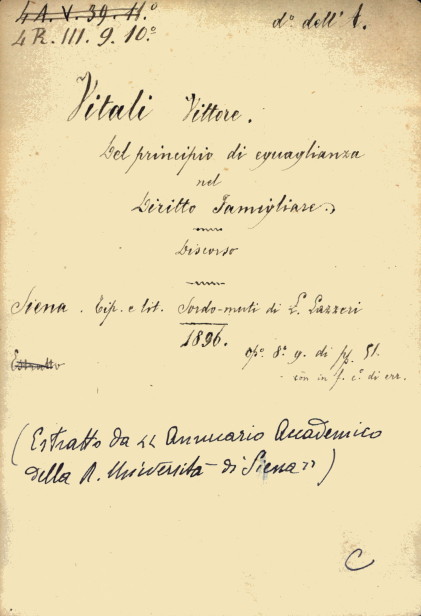 4 A. V. 39. 11.°
4 R. III. 9. 10.°
d.° dell' A.
Vitali Vittore.
Del principio di eguaglianza
nel
Diritto Famigliare.
Discorso
Siena. Tip. e lit. Sordo-muti di L. Lazzeri
1896.
op.° 8.° g. di pg. 51.
Estratto
con in f. c.° di err.
(Estratto da << Annuario Accademico
della R. Università di Siena >>)
C